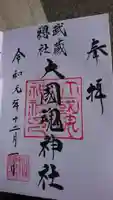 奉拝
武蔵
總社
大國魂神社
令和元年十二月一日